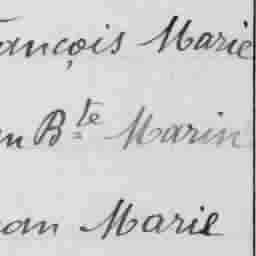 ançois Marie
n Bte Marin
an Marie